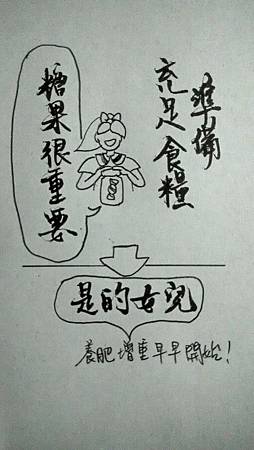 準備
充足食糧
糖果很重要
是的女兒
養肥增重早早開始!